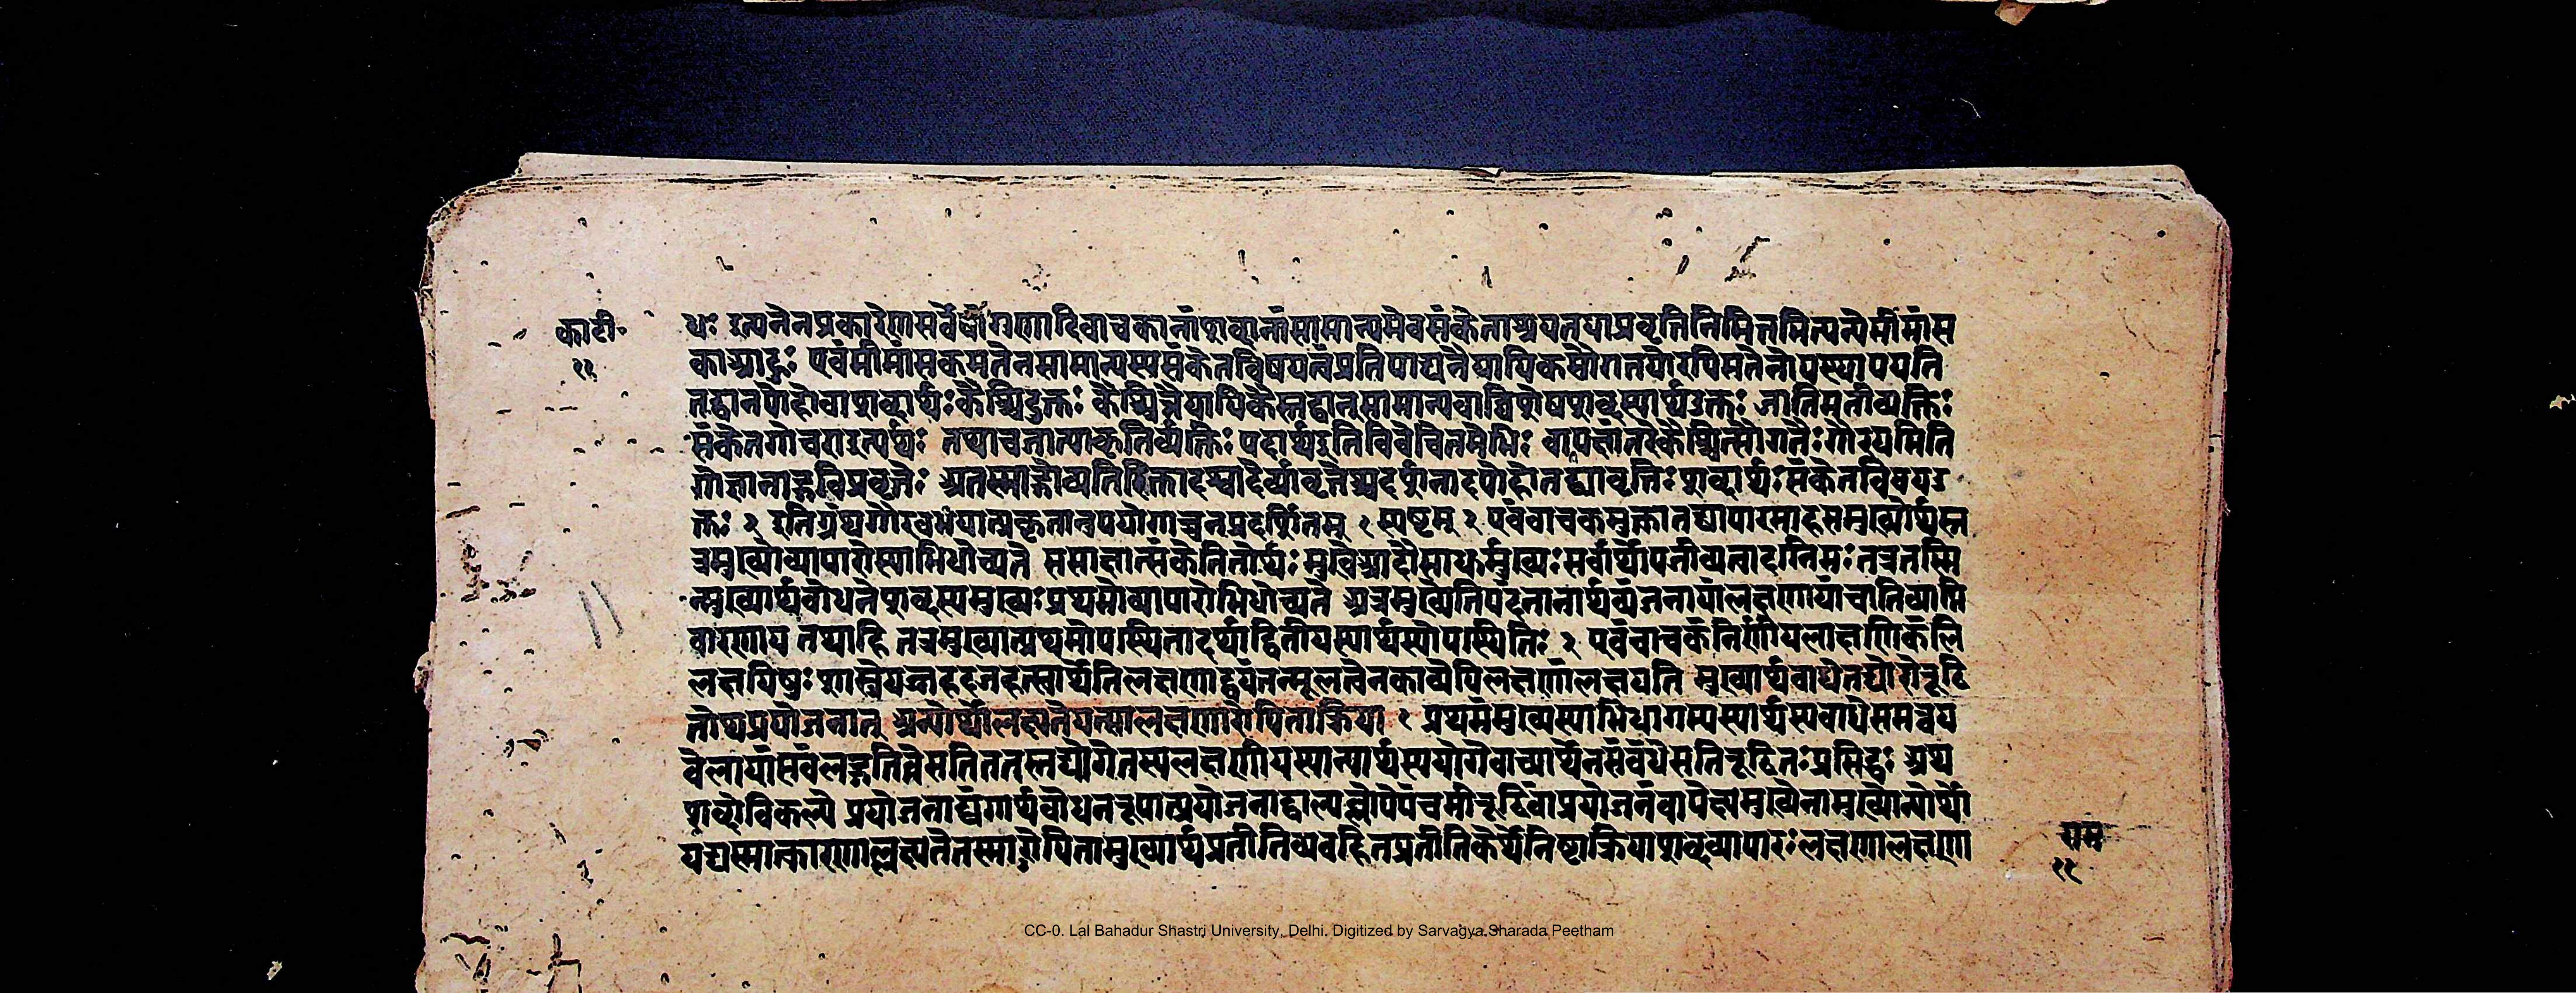 का टी॰
११
र्थः इत्यनेनप्रकारेणसर्वेषांगुणादिवाचकानांशब्दानांसामान्यमेवसंकेताश्रयतयाप्रवृत्तिनिमित्तमित्यन्येमीमांस
काआहुः एवंमीमांसकमतेनसामान्यस्यसंकेतविषयत्वंप्रतिपाद्यनैयायिकसौगतयोरपिमतेनोपस्थापयति
तद्वानपोहोवाशब्दार्थःकैश्चिदुक्तः कैश्चिन्नैयायिकैस्तद्वान्सामान्यवान्विशेषशब्दस्यार्थउक्तः जातिमतीव्यक्तिः
संकेतगोचराइत्यर्थः तथाचजात्याकृतिर्व्यक्तिः पदार्थइतिविवेचितमेभिः वापक्षांतरेकैश्चित्सौगतैः गौरयमिति
गोज्ञानाद्गविप्रवृत्तेः अतस्माद्गोव्यतिरिक्तादश्वादेर्व्यावृत्तेश्चदर्शनादपोहोतद्व्यावृत्तिः शब्दार्थः संकेतविषयउ
क्तः २ इतिग्रंथगौरवभयात्प्रकृतानुपयोगाच्चनप्रदर्शितम् १ स्पष्टम् २ एवंवाचकमुक्त्वातद्व्यापारमाहसमुख्योर्थस्त
त्रमुख्योव्यापारोस्याभिधोच्यते ससाक्षात्संकेतितोर्थः मुखेआदौसाधर्मुख्यः सर्वार्थोपजीव्यत्वादादिमः तत्रतस्मि
न्मुख्यार्थबोधनेशब्दस्यमुख्यः प्रथमोव्यापारोभिधोच्यते अत्रमुख्येतिपदंनानार्थव्यंजनायांलक्षणायांचातिव्याप्ति
वारणाय तथाहि तत्रमुख्यात्प्रथमोपस्थितादर्थाद्द्वितीयस्यार्थस्योपस्थितिः २ एवंवाचकंनिर्णीयलाक्षणिकंलि
लक्षयिषुः शास्त्रेयज्जहदजहत्स्वार्थेतिलक्षणाद्वयंतन्मूलत्वेनकाव्येपिलक्षणांलक्षयति मुख्यार्थबाधेतद्योगेरूढि
तोथप्रयोजनात् अन्योर्थोलक्ष्यतेयत्सालक्षणारोपिताक्रिया १ प्रथमंमुख्यस्याभिधागम्यस्यार्थस्यबाधेसमन्वय
वेलायांसंबंलद्गतित्वेसतिततस्तद्योगेतस्यलक्षणीयस्यान्यार्थस्ययोगेवाच्यार्थेनसंबंधेसतिरूढितः प्रसिद्धेः अथ
शब्दोविकल्पे प्रयोजनाद्व्यंगार्थबोधनरूपात्प्रयोजनाद्वाल्यब्लोपेपंचमीरूढिंवाप्रयोजनंवापेक्ष्यमुख्येनामुख्योन्योर्थो
यद्यस्मात्कारणाल्लक्ष्यतेतस्मारोपितामुख्यार्थप्रतीतिव्यवहितप्रतीतिकेर्थेनिष्टाक्रियाशब्दव्यापारः लक्षणालक्षणा
राम
११
CC-0. Lal Bahadur Shastri University, Delhi. Digitized by Sarvagya Sharada Peetham